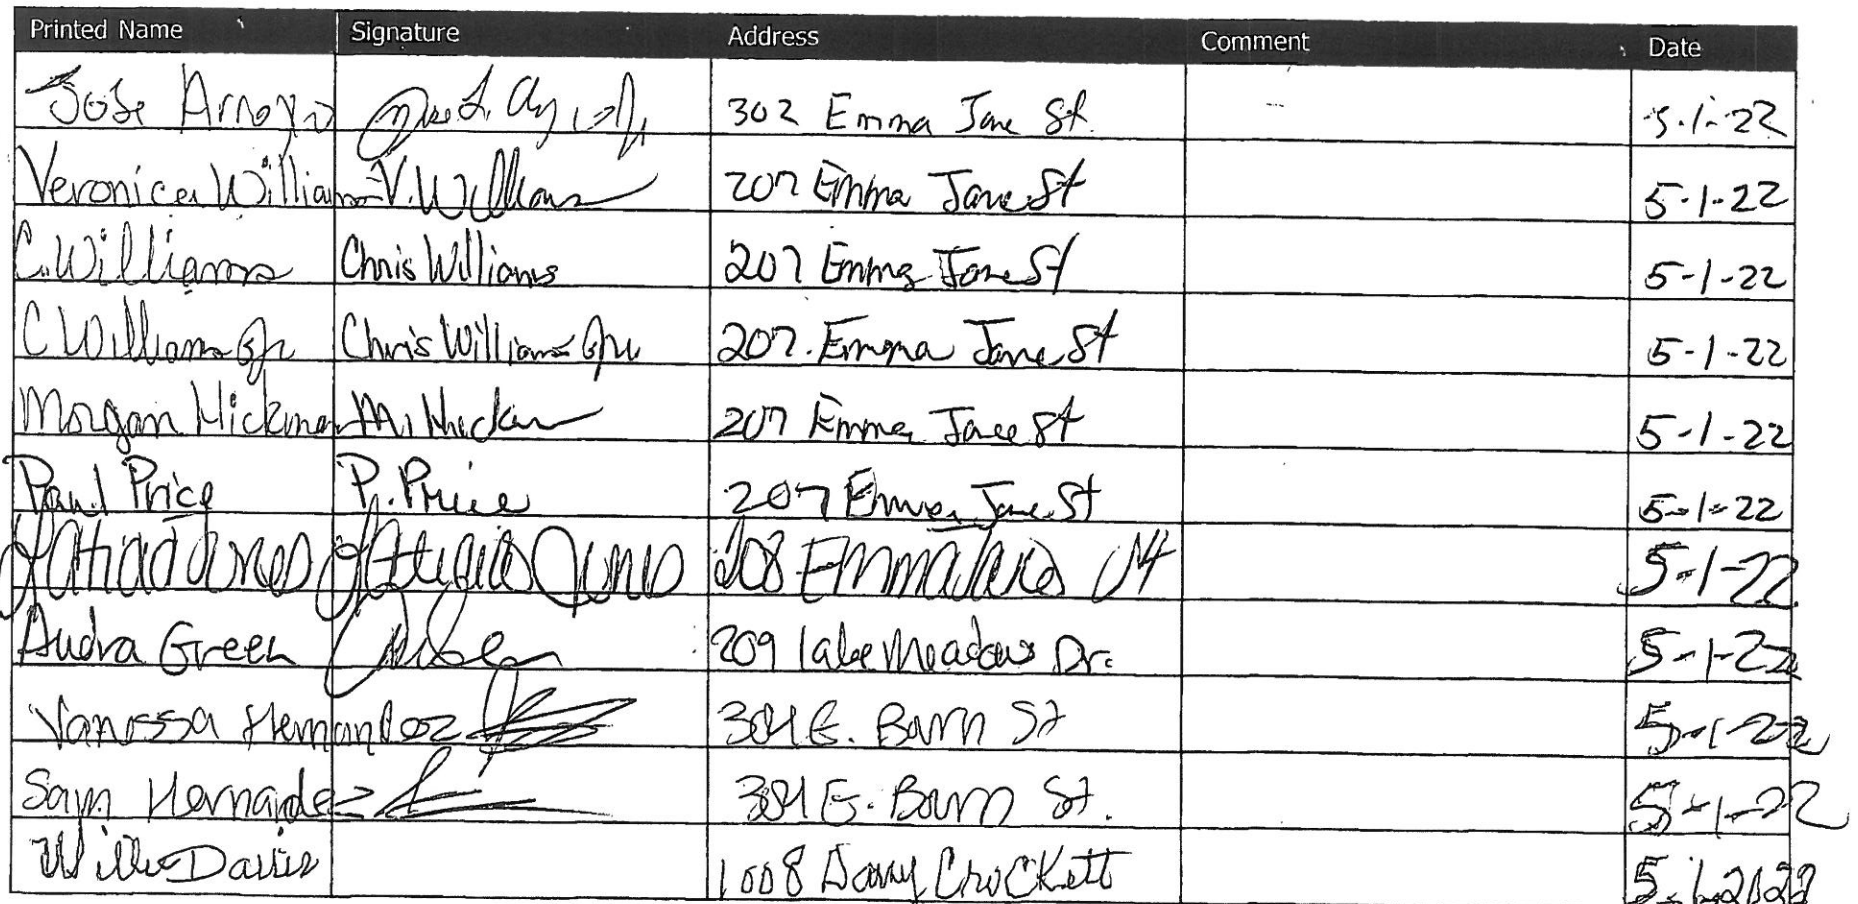 Printed Name Signature Address Comment Date
Jose Arroyo 302 Emma Jane St. 5-1-22
Veronica Williams V. Williams 207 Emma Jane St 5-1-22
C. Williams Chris Williams 207 Emma Jane St 5-1-22
C Williams Jr Chris Williams Jr 207 Emma Jane St 5-1-22
Morgan Hickman M. Hickman 207 Emma Jane St 5-1-22
Paul Price P. Price 207 Emma Jane St 5-1-22
Jones Jones 208 Emma 5-1-22
Audra Green 209 lake Meadows Dr. 5-1-22
Vanessa Hernandez E. Barn St 5-1-22
Sam Hernandez E. Barn St. 5-1-22
Davis 1008 Davy CrocKett 5-1-2022